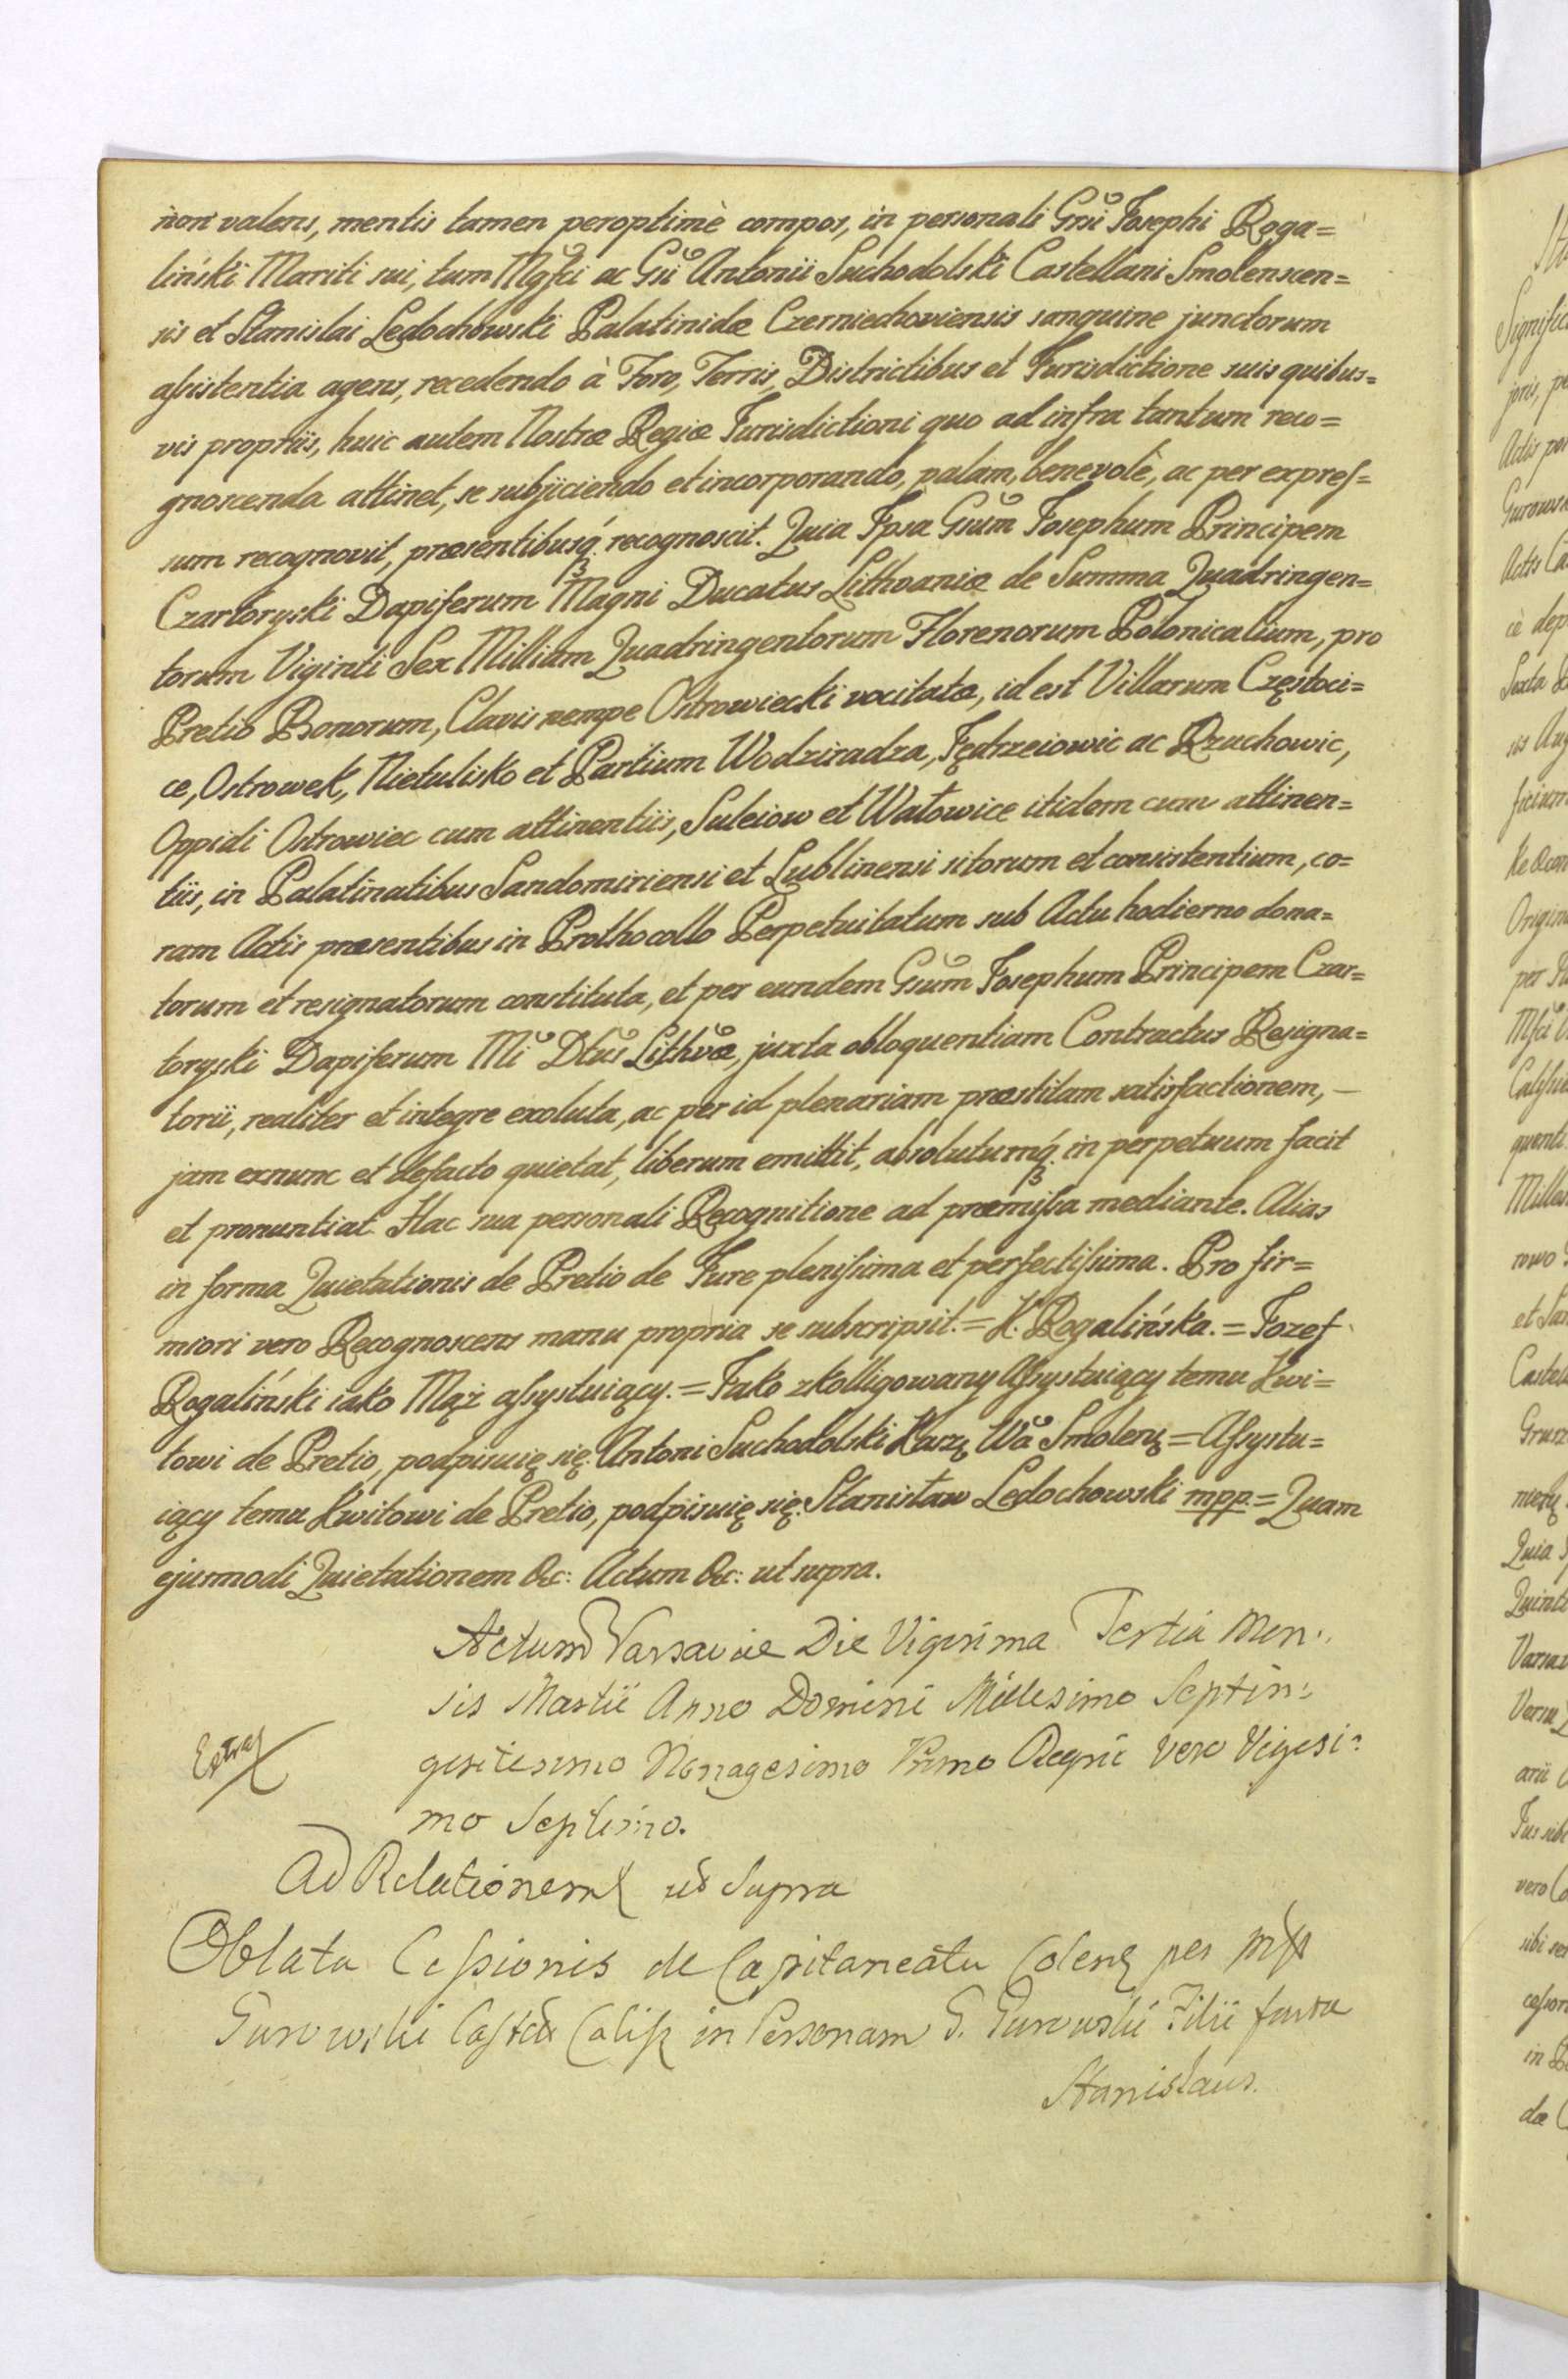 non valens, mentis tamen peroptimè compos, in personali Gsi Josephi Roga=
liński Mariti sui, tum Mgfci ac Gsi Antonii Suchodolski Castellani Smolenscen=
sis et Stanislai Ledochowski Palatinidæ Czerniechoviensis sanguine junctorum
assistentia agens, recedendo à Foro, Terris, Districtibus et Jurisdictione suis quibus=
vis propriis, huic autem Nostræ Regiæ Jurisdictioni quo ad infra tantum reco=
gnoscenda attinet, se subjiciendo et incorporando, palam, benevolè, ac per expres=
sum recognovit, præsentibusq. recognoscit. Quia Ipsa Gsum Josephum Principem
Czartoryski Dapiferum Magni Ducatus Lithvaniæ de Summa Quadringen=
torum Viginti Sex Millium Quadringentorum Florenorum Polonicalium, pro
Pretio Bonorum, Clavis nempe Ostrowiecki vocitatæ, id est Villarum Częstoci=
ce, Ostrowek, Nietulisko et Partium Wodziradza, Jędrzeiowic ac Rzuchowic,
Oppidi Ostrowiec cum attinentiis, Suleiow et Wałowice itidem cum attinen=
tiis, in Palatinatibus Sandomiriensi et Lublinensi sitorum et consistentium, co=
ram Actis præsentibus in Prothocollo Perpetuitatum sub Actu hodierno dona=
torum et resignatorum constituta, et per eundem Gsum Josephum Principem Czar=
toryski Dapiferum Mi Dtus Lithvæ, juxta obloquentiam Contractus Resigna=
torii, realiter et integre exoluta, ac per id plenariam præstitam satisfactionem, —
jam exnunc et defacto quietat, liberum emittit, absolutumq. in perpetuum facit
et pronuntiat. Hac sua personali Recognitione ad præmissa mediante. Alias
in forma Quietationis de Pretio de Jure plenissima et perfectissima. Pro fir=
miori vero Recognoscens manu propria se subscripsit. = K. Rogalińska. = Jozef
Rogaliński iako Mąż assystuiący. = Jako zkolligowany Assystuiący temu Kwi=
towi de Pretio, podpisuię się. Antoni Suchodolski Kasz Wa Smolenz = Assystu=
iący temu Kwitowi de Pretio, podpisuię się. Stanisław Ledochowski mpp = Quam
ejusmodi Quietationem &c: Actum &c: ut supra.
Actum Varsaviae Die Vigesima Tertia Men:
sis Martii Anno Domini Millesimo Septin:
gentesimo Nonagesimo Primo Regni vero Vigesi:
Extra
mo Septimo.
Ad Relationem ut Supra
Oblata Cessionis de Capitaneatu Colens per
Gurowski Castel Calis in Personam G. Gurowski Filii facta
Stanislaus.